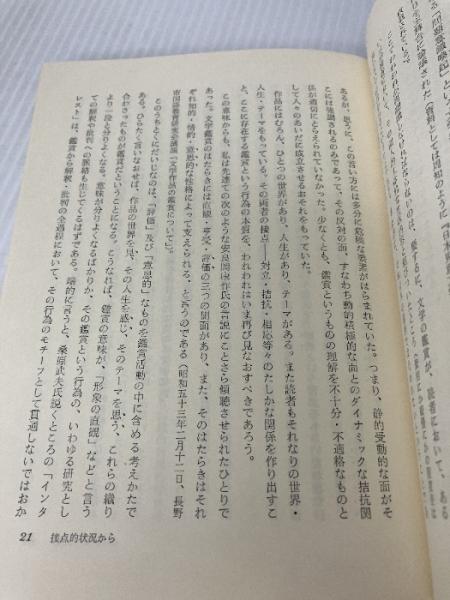 あるが、思うに、この言い方には多分に危険な要素がはらまれていた。つまり、静的受動的な面がそ
こには強調されるのみであって、その反対の面、すなわち動的積極的な面とのダイナミックな拮抗関
係が適切にとらえられていなかった。少なくとも、鑑賞というものの理解を不十分・不適格なものと
して人々のあいだに成立させるおそれをもっていた。
作品にはむろん、ひとつの世界があり、人生があり、テーマがある。また読者もそれなりの世界・
人生・テーマをもっている。その両者の接点――対立・拮抗・相応等々のたしかな関係を作り出すこ
と、ここに存在する鑑賞という行為の本質を、われわれはいま再び見なおすべきであろう。
この意味からも、私は先達ての次のような安良岡康作氏の言説にことさら傾聴させられたひとりで
あった。「文学鑑賞のはたらきには直観・享受・評価の三つの側面があり、また、そのはたらきはそれ
ぞれ知的・情的・意思的な性格によって支えられる」と言うのである（昭和五十三年二月十二日、長野
市国語教育研究会講演「文学作品の鑑賞について」）。
このうちとくにだいじなのは、「評価」及び「意思的」なものを鑑賞活動の中に含める考えかたで
ある。ひらたく言いなおせば、作品の世界を見、その人生を感じ、そのテーマを思う、これらの織り
合わさったものが鑑賞だということになる。こうなれば、鑑賞の意味が、「形象の直観」などと言う
より一段と分りよくなる。意味が分りよくなるばかりか、その鑑賞という行為の、いわゆる研究とし
ての解釈や批判への脈絡も生じてくるはずである。端的に言うと、桑原武夫氏説くところの「インタ
レスト」は、鑑賞から解釈・批判の全過程において、その行為のモチーフとして貫通しないではおか
21 接点的状況から